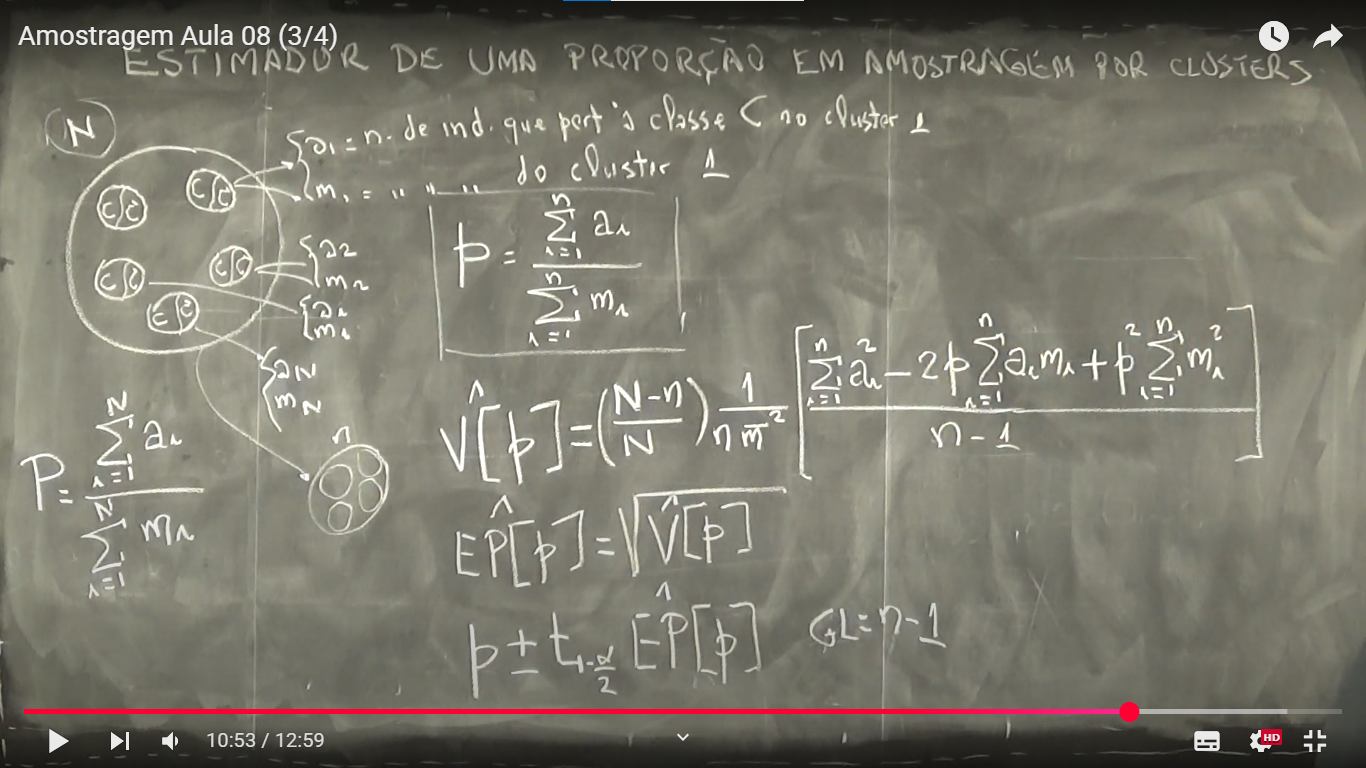 Amostragem Aula 08 (3/4)
ESTIMADOR DE UMA PROPORÇÃO EM AMOSTRAGEM POR CLUSTERS
N
{a₁ = n. de ind. que pert. à classe C no cluster 1
{m₁ = " " " do cluster 1
C C̄
C C̄
C C̄
C C̄
C C̄
{a₂
{m₂
{aᵢ
{mᵢ
{a_N
{m_N
n
p = Σᵢ₌₁ⁿ aᵢ / Σᵢ₌₁ⁿ mᵢ
P = Σᵢ₌₁ᴺ aᵢ / Σᵢ₌₁ᴺ mᵢ
V̂[p] = ((N-n)/N) 1/(n m̄²) [(Σᵢ₌₁ⁿ aᵢ² - 2p Σᵢ₌₁ⁿ aᵢmᵢ + p² Σᵢ₌₁ⁿ mᵢ²)/(n-1)]
EP̂[p] = √V̂[p]
p ± t₁₋α/₂ EP̂[p] GL = n-1
10:53 / 12:59
HD